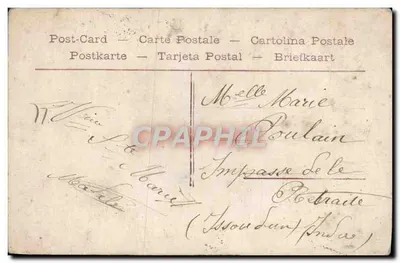 Post-Card — Carte Postale — Cartolina Postale
Postkarte — Tarjeta Postal — Briefkaart
Melle Marie
Poulain
Impasse de la
Retraite
(Issoudun) Indre)
Ste Marie
CPARAMA